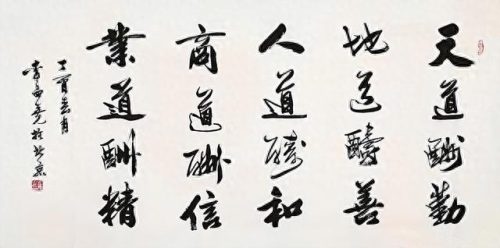 天道酬勤
地道酬善
人道酬和
商道酬信
業道酬精
於北京